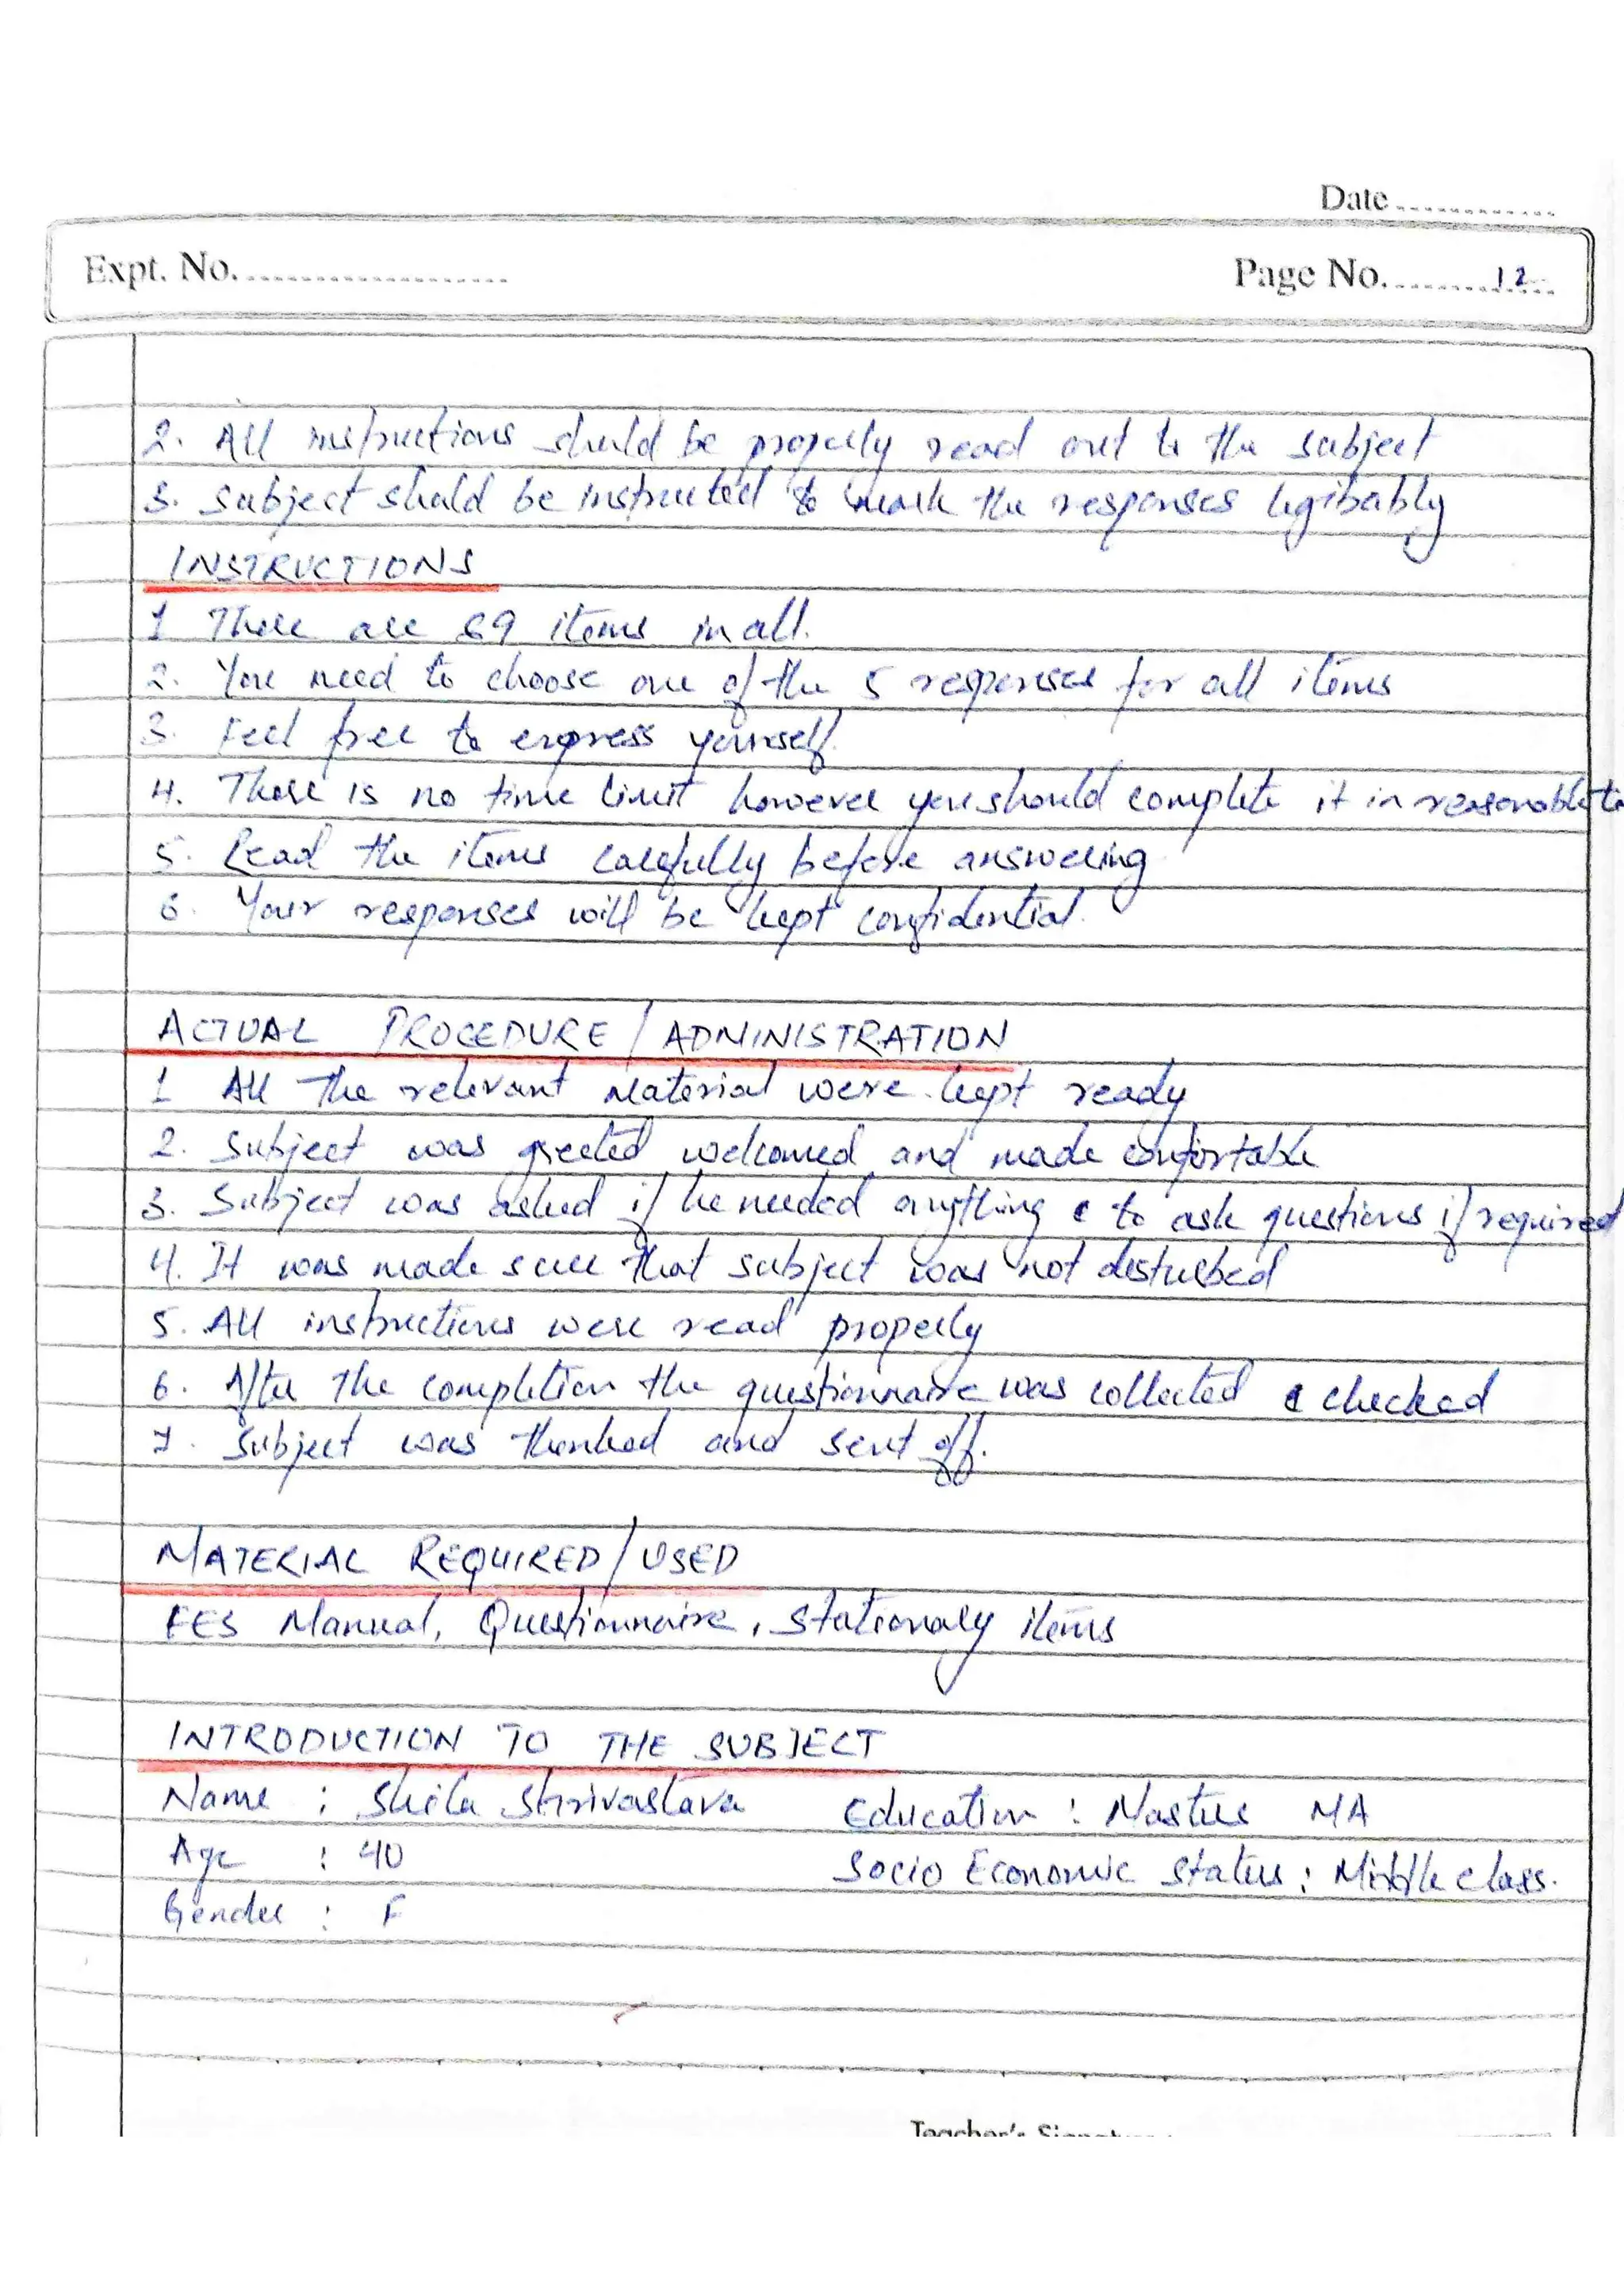 Date
Expt. No.
Page No. 12
2. All instructions should be properly read out to the subject
3. Subject should be instructed to mark the responses legibably
INSTRUCTIONS
1 There are 69 items in all.
2. You need to choose one of the 5 responses for all items
3. Feel free to express yourself.
4. There is no time limit however you should complete it in reasonable
5. Read the items carefully before answering
6. Your responses will be kept confidential.
ACTUAL PROCEDURE / ADMINISTRATION
1 All the relevant material were kept ready
2. Subject was greeted welcomed and made comfortable
3. Subject was asked if he needed anything & to ask questions if required
4. It was made sure that subject was not disturbed
5. All instructions were read properly
6. After the completion the questionnaire was collected & checked
7. Subject was thanked and sent off.
MATERIAL REQUIRED / USED
FES Manual, Questionnaire, Stationary items
INTRODUCTION TO THE SUBJECT
Name : Shila Shrivastava Education : Masters MA
Age : 40 Socio Economic Status : Middle class.
Gender : F
Teacher's